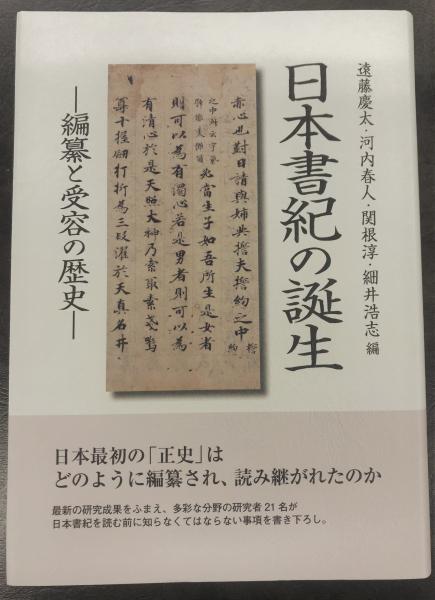 遠藤慶太・河内春人・関根淳・細井浩志 編
日本書紀の誕生
赤心也對曰請與姉共誓夫誓約之中 誓約
之中此云宇氣
必當生子如吾所生是女者
則可以為有濁心若是男者則可以為
有清心於是天照大神乃索取素戔嗚
尊十握劒打折為三段濯於天真名井
―編纂と受容の歴史―
日本最初の「正史」は
どのように編纂され、読み継がれたのか
最新の研究成果をふまえ、多彩な分野の研究者21名が
日本書紀を読む前に知らなくてはならない事項を書き下ろし。